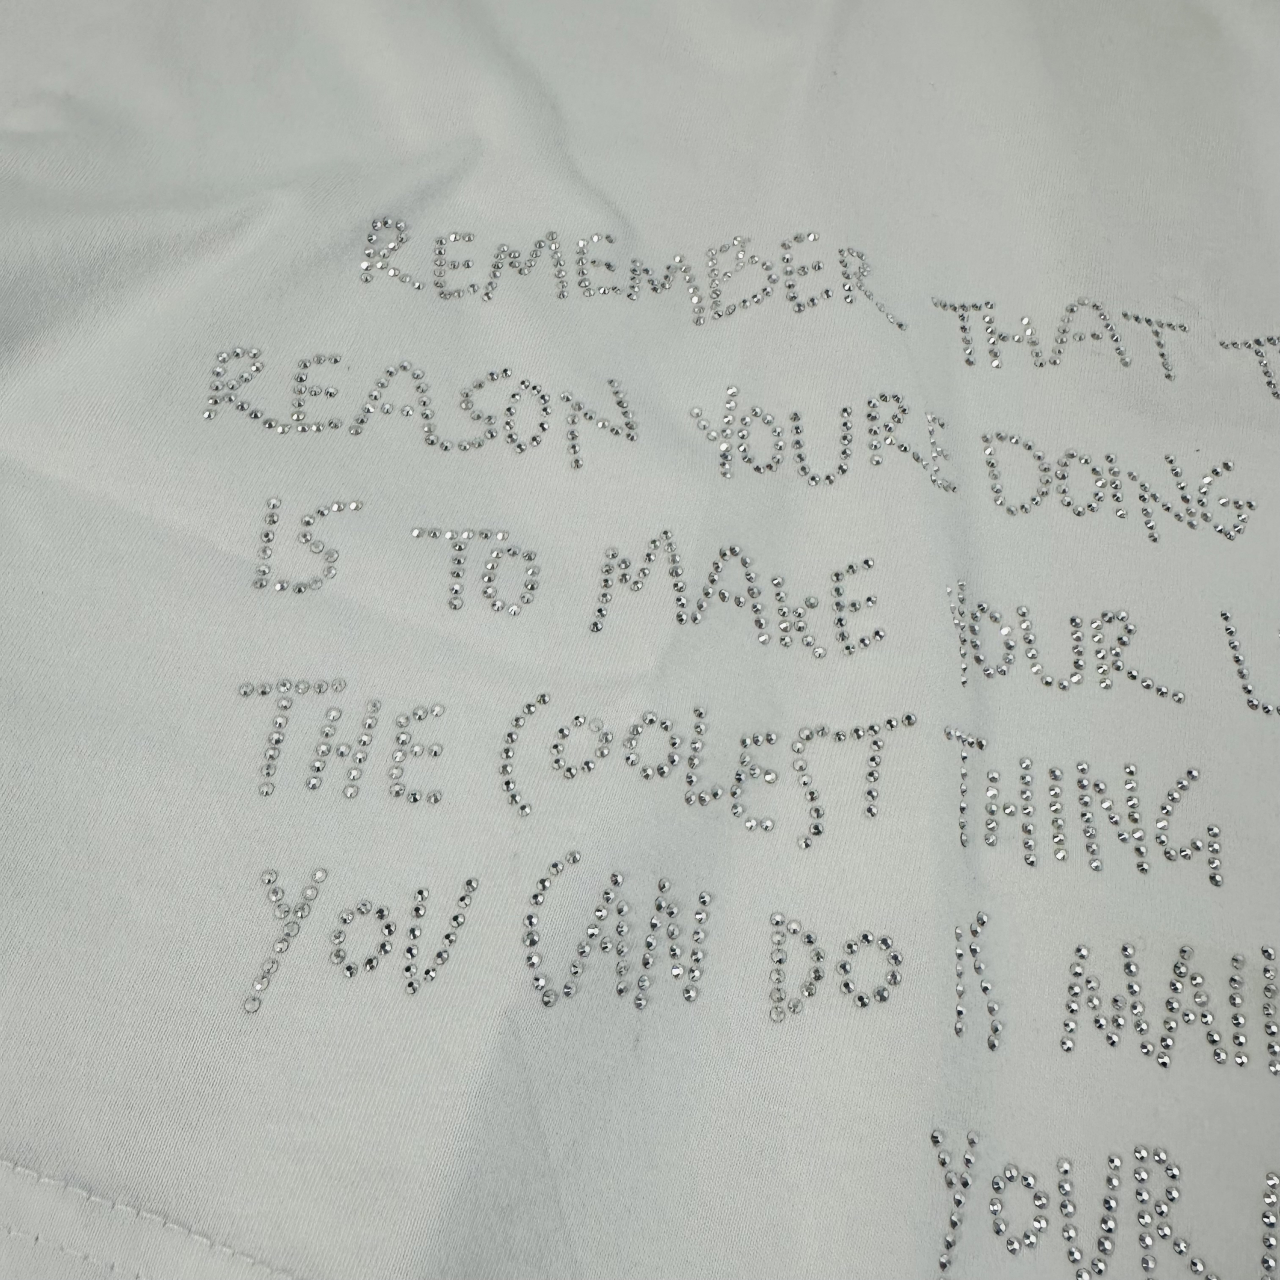 REMEMBER THAT T
REASON YOUR DOING
IS TO MAKE YOUR
THE COOLEST THING
YOU CAN DO
YOUR